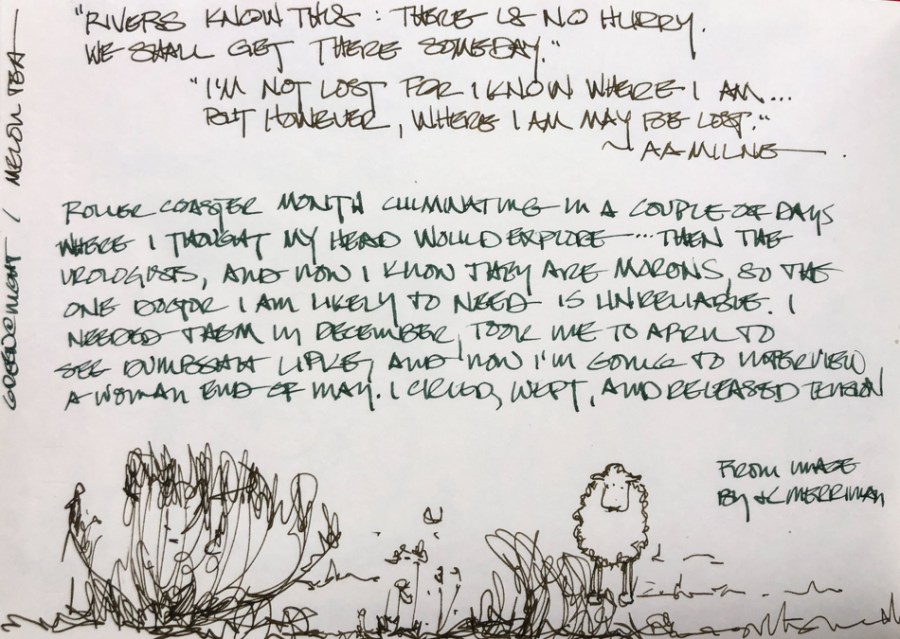 "RIVERS KNOW THIS: THERE IS NO HURRY.
WE SHALL GET THERE SOMEDAY."
"I'M NOT LOST FOR I KNOW WHERE I AM...
BUT HOWEVER, WHERE I AM MAY BE LOST."
~ AA MILNE
ROLLER COASTER MONTH CULMINATING IN A COUPLE OF DAYS
WHERE I THOUGHT MY HEAD WOULD EXPLODE ... THEN THE
UROLOGISTS, AND NOW I KNOW THEY ARE MORONS, SO THE
ONE DOCTOR I AM LIKELY TO NEED IS UNRELIABLE. I
NEEDED THEM IN DECEMBER, TOOK ME TO APRIL TO
SEE LIPKE, AND NOW I'M GOING TO INTERVIEW
A WOMAN END OF MAY. I CRIED, WEPT, AND RELEASED TENSION
FROM IMAGE
BY K MERRIMAN
/ MELON TEA